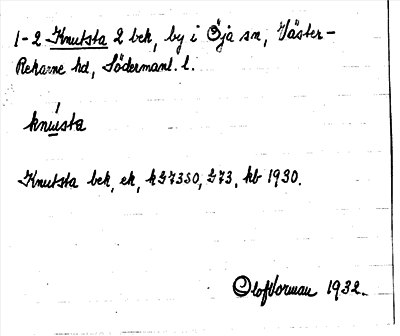 1-2 Knutsta 2 bek, by i Öja sn, Väster-
Rekarne hd, Södermanl. l.
knusta
Knutsta bek, ek, kb 1930.
Olof Vorman 1932.